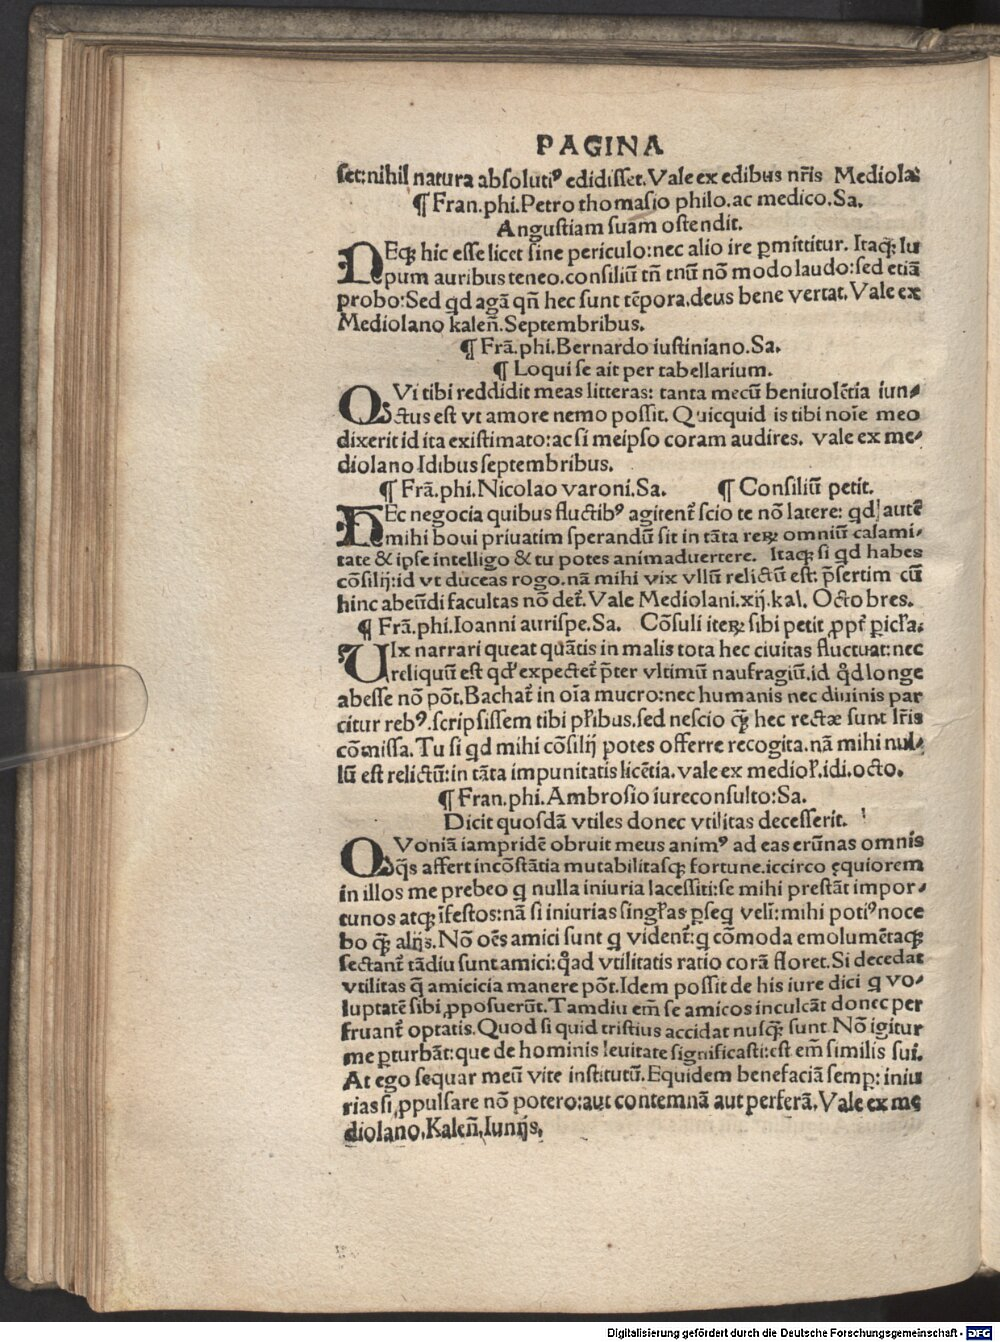 PAGINA
set:nihil natura absoluti⁹ edidisset. Vale ex edibus nr̃is Mediola:
¶ Fran.phi.Petro thomasio philo.ac medico.Sa.
Angustiam suam ostendit.
NEqꝫ hic esse licet sine periculo:nec alio ire ꝑmittitur. Itaqꝫ lu
pum auribus teneo.consiliũ tñ tuũ nõ modo laudo:sed etiã
probo:Sed qd agã qñ hec sunt tẽpora.deus bene vertat. Vale ex
Mediolano kaleñ.Septembribus.
¶ Frã.phi.Bernardo iustiniano.Sa.
¶ Loqui se ait per tabellarium.
QVi tibi reddidit meas litteras: tanta mecũ beniuolẽtia iun⸗
ctus est vt amore nemo possit. Quicquid is tibi noĩe meo
dixerit id ita existimato:ac si meipso coram audires. vale ex me⸗
diolano Idibus septembribus.
¶ Frã.phi.Nicolao varoni.Sa. ¶ Consiliũ petit.
HEc negocia quibus fluctib⁹ agitent̃ scio te nõ latere: qd autẽ
mihi boui priuatim sperandũ sit in tãta reꝝ omniũ calami⸗
tate & ipse intelligo & tu potes animaduertere. Itaqꝫ si qd habes
cõsilij:id vt duceas rogo.nã mihi vix vllũ relictũ est: p̃sertim cũ
hinc abeũdi facultas nõ det̃. Vale Mediolani.xij.kal. Octobres.
¶ Frã.phi.Ioanni aurispe.Sa. Cõsuli iteꝝ sibi petit ꝓpt̃ pict̃a.
UIx narrari queat quãtis in malis tota hec ciuitas fluctuat:nec
reliquũ est qd̃ expectet̃ p̃ter vltimũ naufragiũ.id qd̃ longe
abesse nõ põt. Bachat̃ in oĩa mucro:nec humanis nec diuinis par
citur reb⁹.scripsissem tibi pl̃ibus.sed nescio qꝫ̃ hec rectæ sunt lr̃is
cõmissa. Tu si qd mihi cõsilij potes offerre recogita.nã mihi nul⸗
lũ est relictũ:in tãta impunitatis licẽtia.vale ex mediol̃.idi.octo.
¶ Fran.phi.Ambrosio iureconsulto:Sa.
Dicit quosdã vtiles donec vtilitas decesserit.
QVoniã iampridẽ obruit meus anim⁹ ad eas erũnas omnis
q̃s affert incõstãtia mutabilitasqꝫ fortune.iccirco ęquiorem
in illos me prebeo q nulla iniuria lacessiti:se mihi prestãt impor⸗
tunos atqꝫ ĩfestos:nã si iniurias singl̃as ꝑseq veli:mihi poti⁹ noce
bo qꝫ̃ alijs. Nõ oẽs amici sunt q vident̃:q cõmoda emolumẽtaqꝫ
sectant̃ tãdiu sunt amici:q̃ad vtilitatis ratio corã floret. Si decedat
vtilitas q̃ amicicia manere põt. Idem possit de his iure dici q vo⸗
luptatẽ sibi ꝓposuerũt. Tamdiu em̃ se amicos inculcãt donec per
fruant̃ optatis. Quod si quid tristius accidat nusqꝫ̃ sunt. Nõ igitur
me ꝑturbãt:que de hominis leuitate significasti:est em̃ similis sui.
At ego sequar meũ vite institutũ. Equidem benefaciã semꝑ: iniu
rias si ꝓpulsare nõ potero:aut contemnã aut perferã. Vale ex me
diolano.Kaleñ.Iunijs.
Digitalisierung gefördert durch die Deutsche Forschungsgemeinschaft - DFG